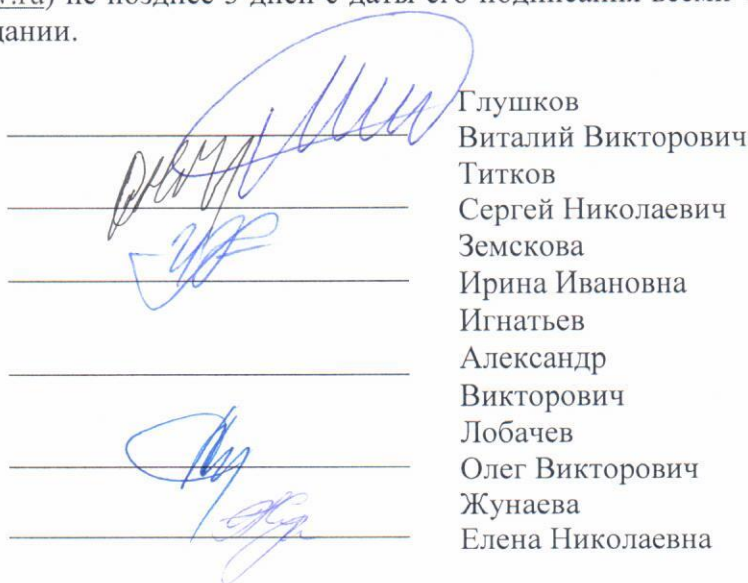 .ru) не позднее 3 дней с даты его подписания всеми
дании.
Глушков
Виталий Викторович
Титков
Сергей Николаевич
Земскова
Ирина Ивановна
Игнатьев
Александр
Викторович
Лобачев
Олег Викторович
Жунаева
Елена Николаевна